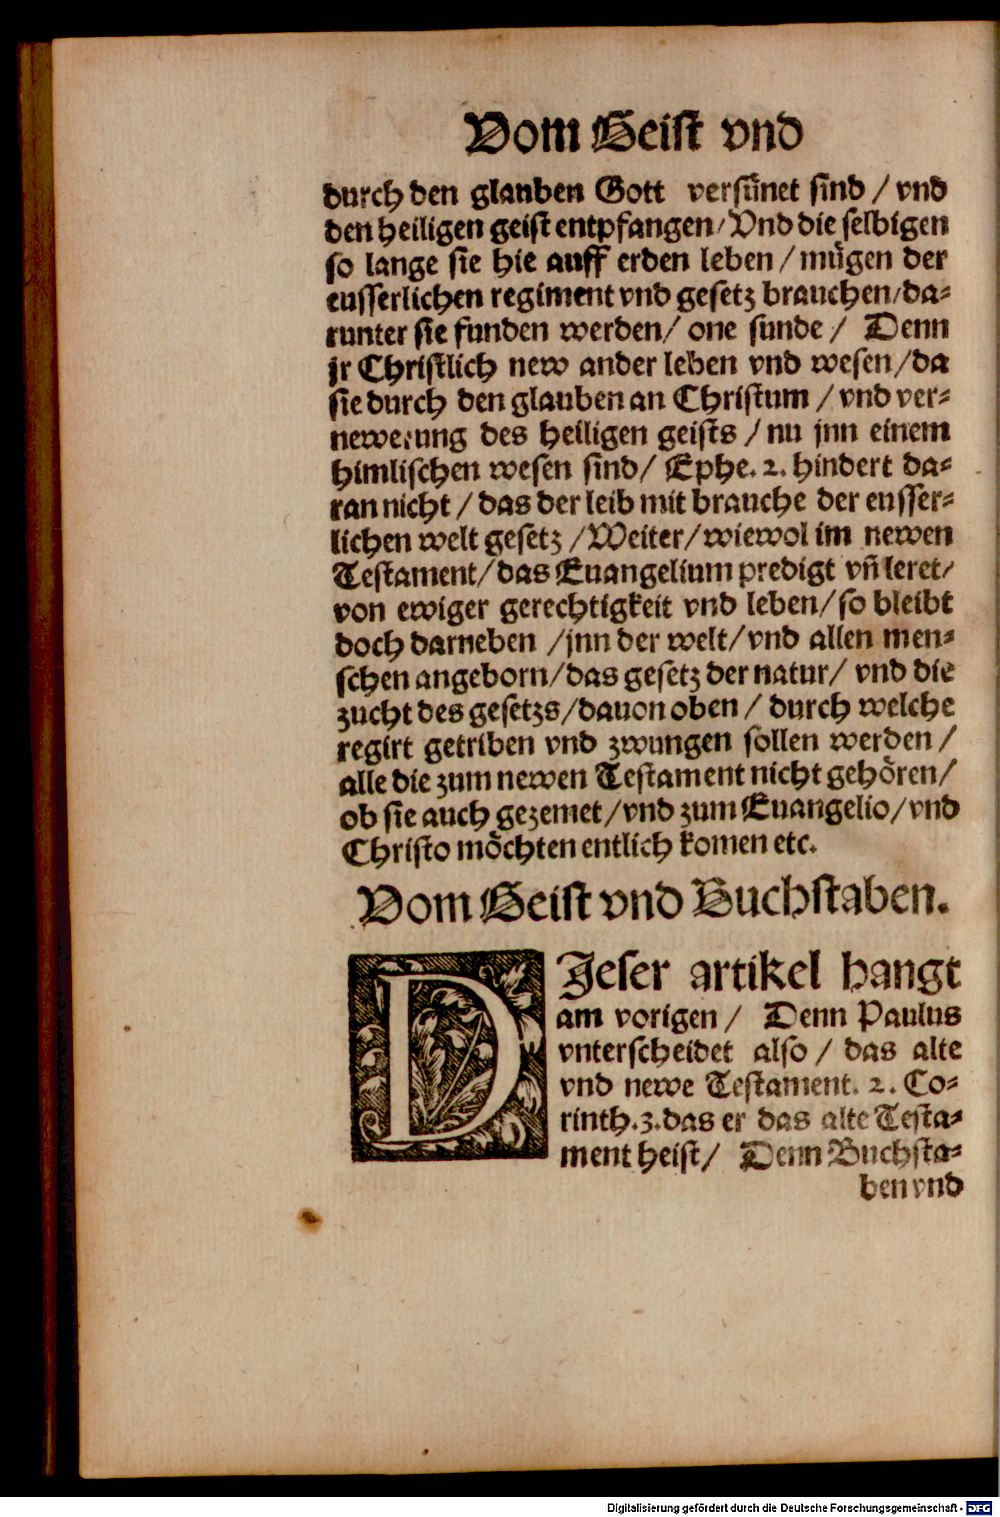 Vom Geist vnd
durch den glauben Gott versünet sind / vnd
den heiligen geist entpfangen / Vnd die selbigen
so lange sie hie auff erden leben / mügen der
eusserlichen regiment vnd gesetz brauchen / da-
runter sie funden werden / one sunde / Denn
jr Christlich new ander leben vnd wesen / da
sie durch den glauben an Christum / vnd ver-
newerung des heiligen geists / nu jnn einem
himlischen wesen sind / Ephe. 2. hindert da-
ran nicht / das der leib mit brauche der eusser-
lichen welt gesetz / Weiter / wiewol im newen
Testament / das Euangelium predigt vn̄ leret /
von ewiger gerechtigkeit vnd leben / so bleibt
doch darneben / jnn der welt / vnd allen men-
schen angeborn / das gesetz der natur / vnd die
zucht des gesetzs / dauon oben / durch welche
regirt getriben vnd zwungen sollen werden /
alle die zum newen Testament nicht gehören /
ob sie auch gezemet / vnd zum Euangelio / vnd
Christo möchten entlich komen etc.
Vom Geist vnd Buchstaben.
DJeser artikel hangt
am vorigen / Denn Paulus
vnterscheidet also / das alte
vnd newe Testament. 2. Co-
rinth. 3. das er das alte Testa-
ment heist / Denn Buchsta-
ben vnd
Digitalisierung gefördert durch die Deutsche Forschungsgemeinschaft - DFG